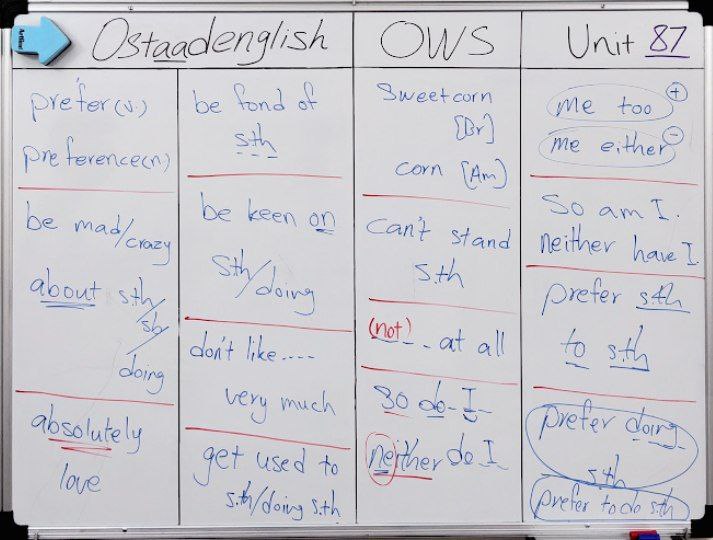 Ostaadenglish
OWS
Unit 87
prefer (v.)
preference (n)
be mad/crazy
about sth/
sb/
doing
absolutely
love
be fond of
sth
be keen on
sth/doing
don't like....
very much
get used to
sth/doing sth
Sweetcorn
[Br]
corn [Am]
can't stand
sth
(not) _ _ _ at all
so do I
neither do I
me too +
me either -
So am I.
neither have I
prefer sth
to sth
prefer doing
sth
prefer to do sth